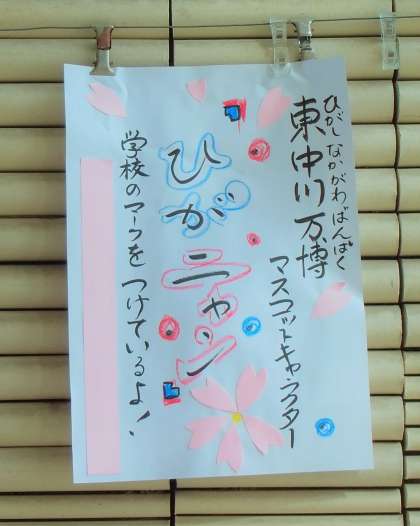 ひがしなかがわばんぱく
東中川万博
マスコットキャラクター
ひがニャン
学校のマークをつけているよ!